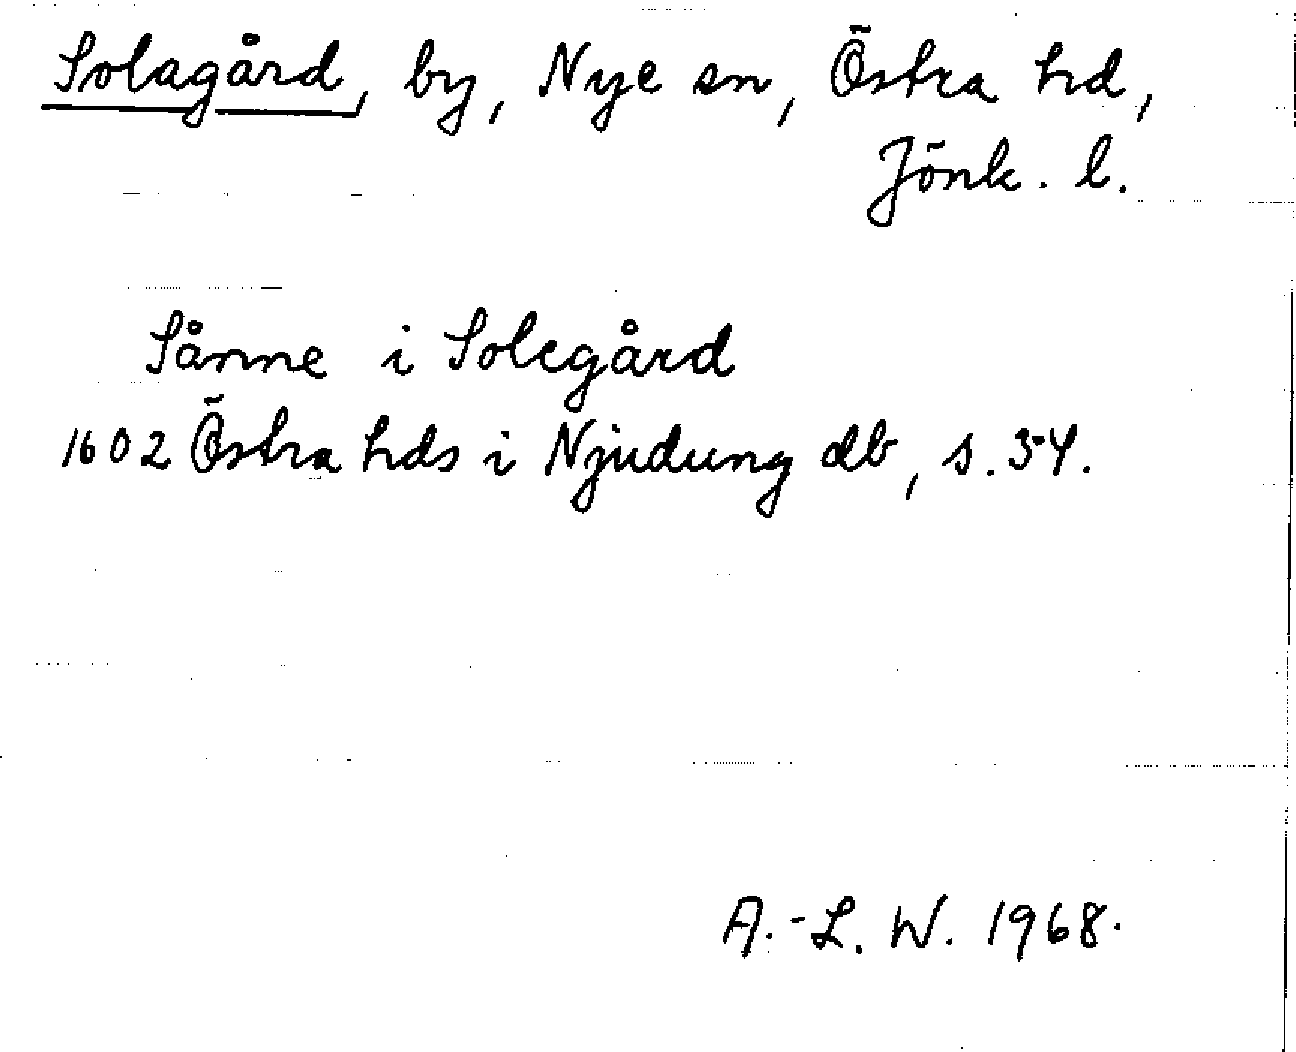 Solagård, by, Nye sn, Östra hd,
Jönk. l.
Sånne i Solegård
1602 Östra hds i Njudung db, s. 54.
A.-L. W. 1968.